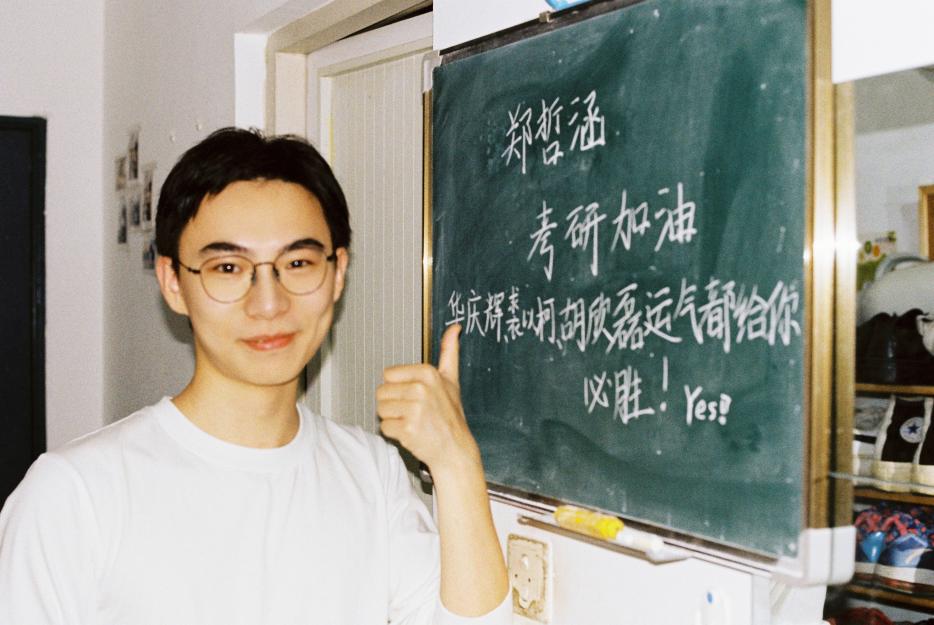 郑哲涵
考研加油
华庆辉、裘以柯、胡欣磊运气都给你
必胜！Yes!